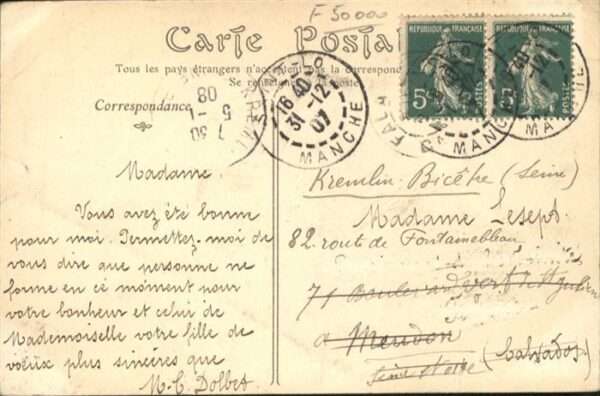 F 50000
Carte Postale
Tous les pays étrangers n'acceptent pas la correspondance
Se rens
Correspondance
RÉPUBLIQUE FRANÇAISE
5c
POSTES
RÉPUBLIQUE FRANÇAISE
5c
POSTES
7 30
5 -1
08
16 40
31 -12
07
MANCHE
MANCHE
MANCHE
Madame.
Vous avez été bonne
pour moi. Permettez-moi de
vous dire que personne ne
forme en cé moment pour
votre bonheur et celui de
Mademoiselle votre fille de
voeux plus sincères que
M-C. Dolbet
Kremlin-Bicêtre (Seine)
Madame Lesept
82. route de Fontainebleau
71 Boulevard
a Meudon
Seine et oise
(Calvados)